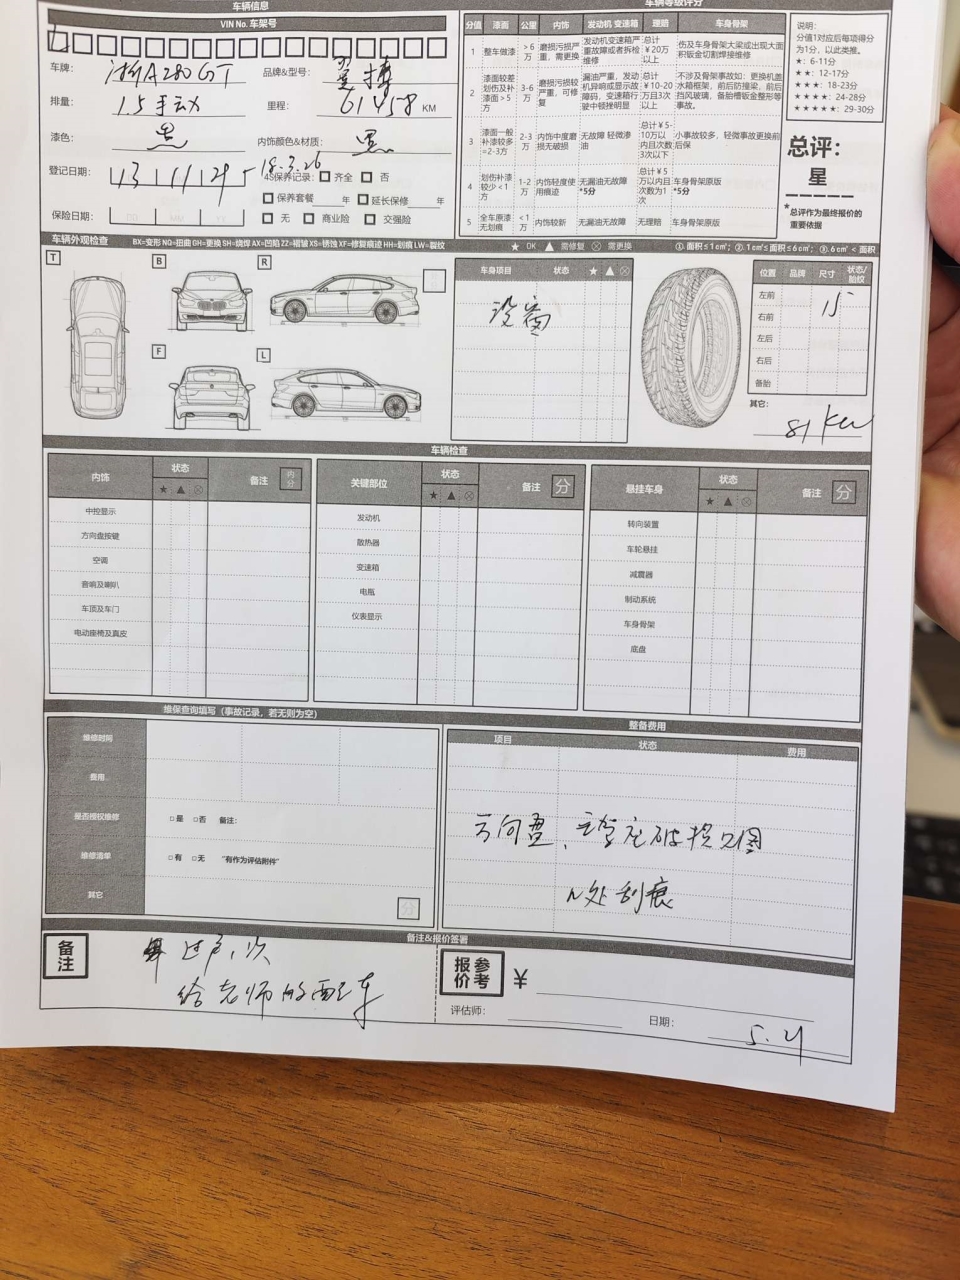 车辆信息
VIN No. 车架号
车牌: 浙A280GT 品牌&型号: 翼搏
排量: 1.5手动 里程: 61458 KM
漆色: 黑 内饰颜色&材质: 黑
登记日期: 13 11 29 18.3.26
4S保养记录: □ 齐全 □ 否
□ 保养套餐 年 □ 延长保修 年
保险日期: □ 无 □ 商业险 □ 交强险
车辆等级评分
分值 漆面 公里 内饰 发动机 变速箱 理赔 车身骨架
1 整车做漆 >6万 磨损污损严重，需更换 发动机变速箱严重故障或者拆检维修 总计¥20万以上 伤及车身骨架大梁或出现大面积钣金切割焊接维修
2 漆面较差划伤及补漆面>5方 3-6万 磨损污损较严重，可修复 漏油严重，发动机异响或显示故障码，变速箱行驶中顿挫明显 总计¥10-20万且3次以上 不涉及骨架事故如：更换机盖水箱框架，前后防撞梁，前后挡风玻璃，备胎槽钣金整形等事故。
3 漆面一般补漆较多=2-3方 2-3万 内饰中度磨损无破损 无故障 轻微渗油 总计¥5-10万以内且次数3次以下 小事故较多，轻微事故更换前后保
4 划伤补漆较少<1方 1-2万 内饰轻度使用痕迹 无漏油无故障*5分 总计¥5万以内且次数为1次 车身骨架原版*5分
5 全车原漆无划痕 <1万 内饰较新 无漏油无故障 无理赔 车身骨架原版
说明:
分值1对应后每项得分为1分，以此类推。
★: 6-11分
★★: 12-17分
★★★: 18-23分
★★★★: 24-28分
★★★★★: 29-30分
总评:
星
*总评作为最终报价的重要依据
车辆外观检查 BX=变形 NQ=扭曲 GH=更换 SH=烧焊 AX=凹陷 ZZ=褶皱 XS=锈蚀 XF=修复痕迹 HH=划痕 LW=裂纹 ★ OK ▲ 需修复 ⊗ 需更换 ①. 面积≤1c㎡; ②. 1c㎡≤面积≤6c㎡; ③. 6c㎡<面积
T B R
F L
车身项目 状态 ★ ▲ ⊗
没窗
位置 品牌 尺寸 状态/胎纹
左前 15
右前
左后
右后
备胎
其它:
81 kw
车辆检查
内饰 状态 备注 内分
★ ▲ ⊗
中控显示
方向盘按键
空调
音响及喇叭
车顶及车门
电动座椅及真皮
关键部位 状态 备注 分
★ ▲ ⊗
发动机
散热器
变速箱
电瓶
仪表显示
悬挂车身 状态 备注 分
★ ▲ ⊗
转向装置
车轮悬挂
减震器
制动系统
车身骨架
底盘
维保查询填写（事故记录，若无则为空）
维修时间
费用
是否授权维修 □是 □否 备注:
维修清单 □有 □无 "有作为评估附件"
其它
分
整备费用
项目 状态 费用
方向盘、主驾座破损见图
N处刮痕
备注&报价签署
备注
过户1次
给老师的配车
参考报价 ¥
评估师: 日期: 5.21